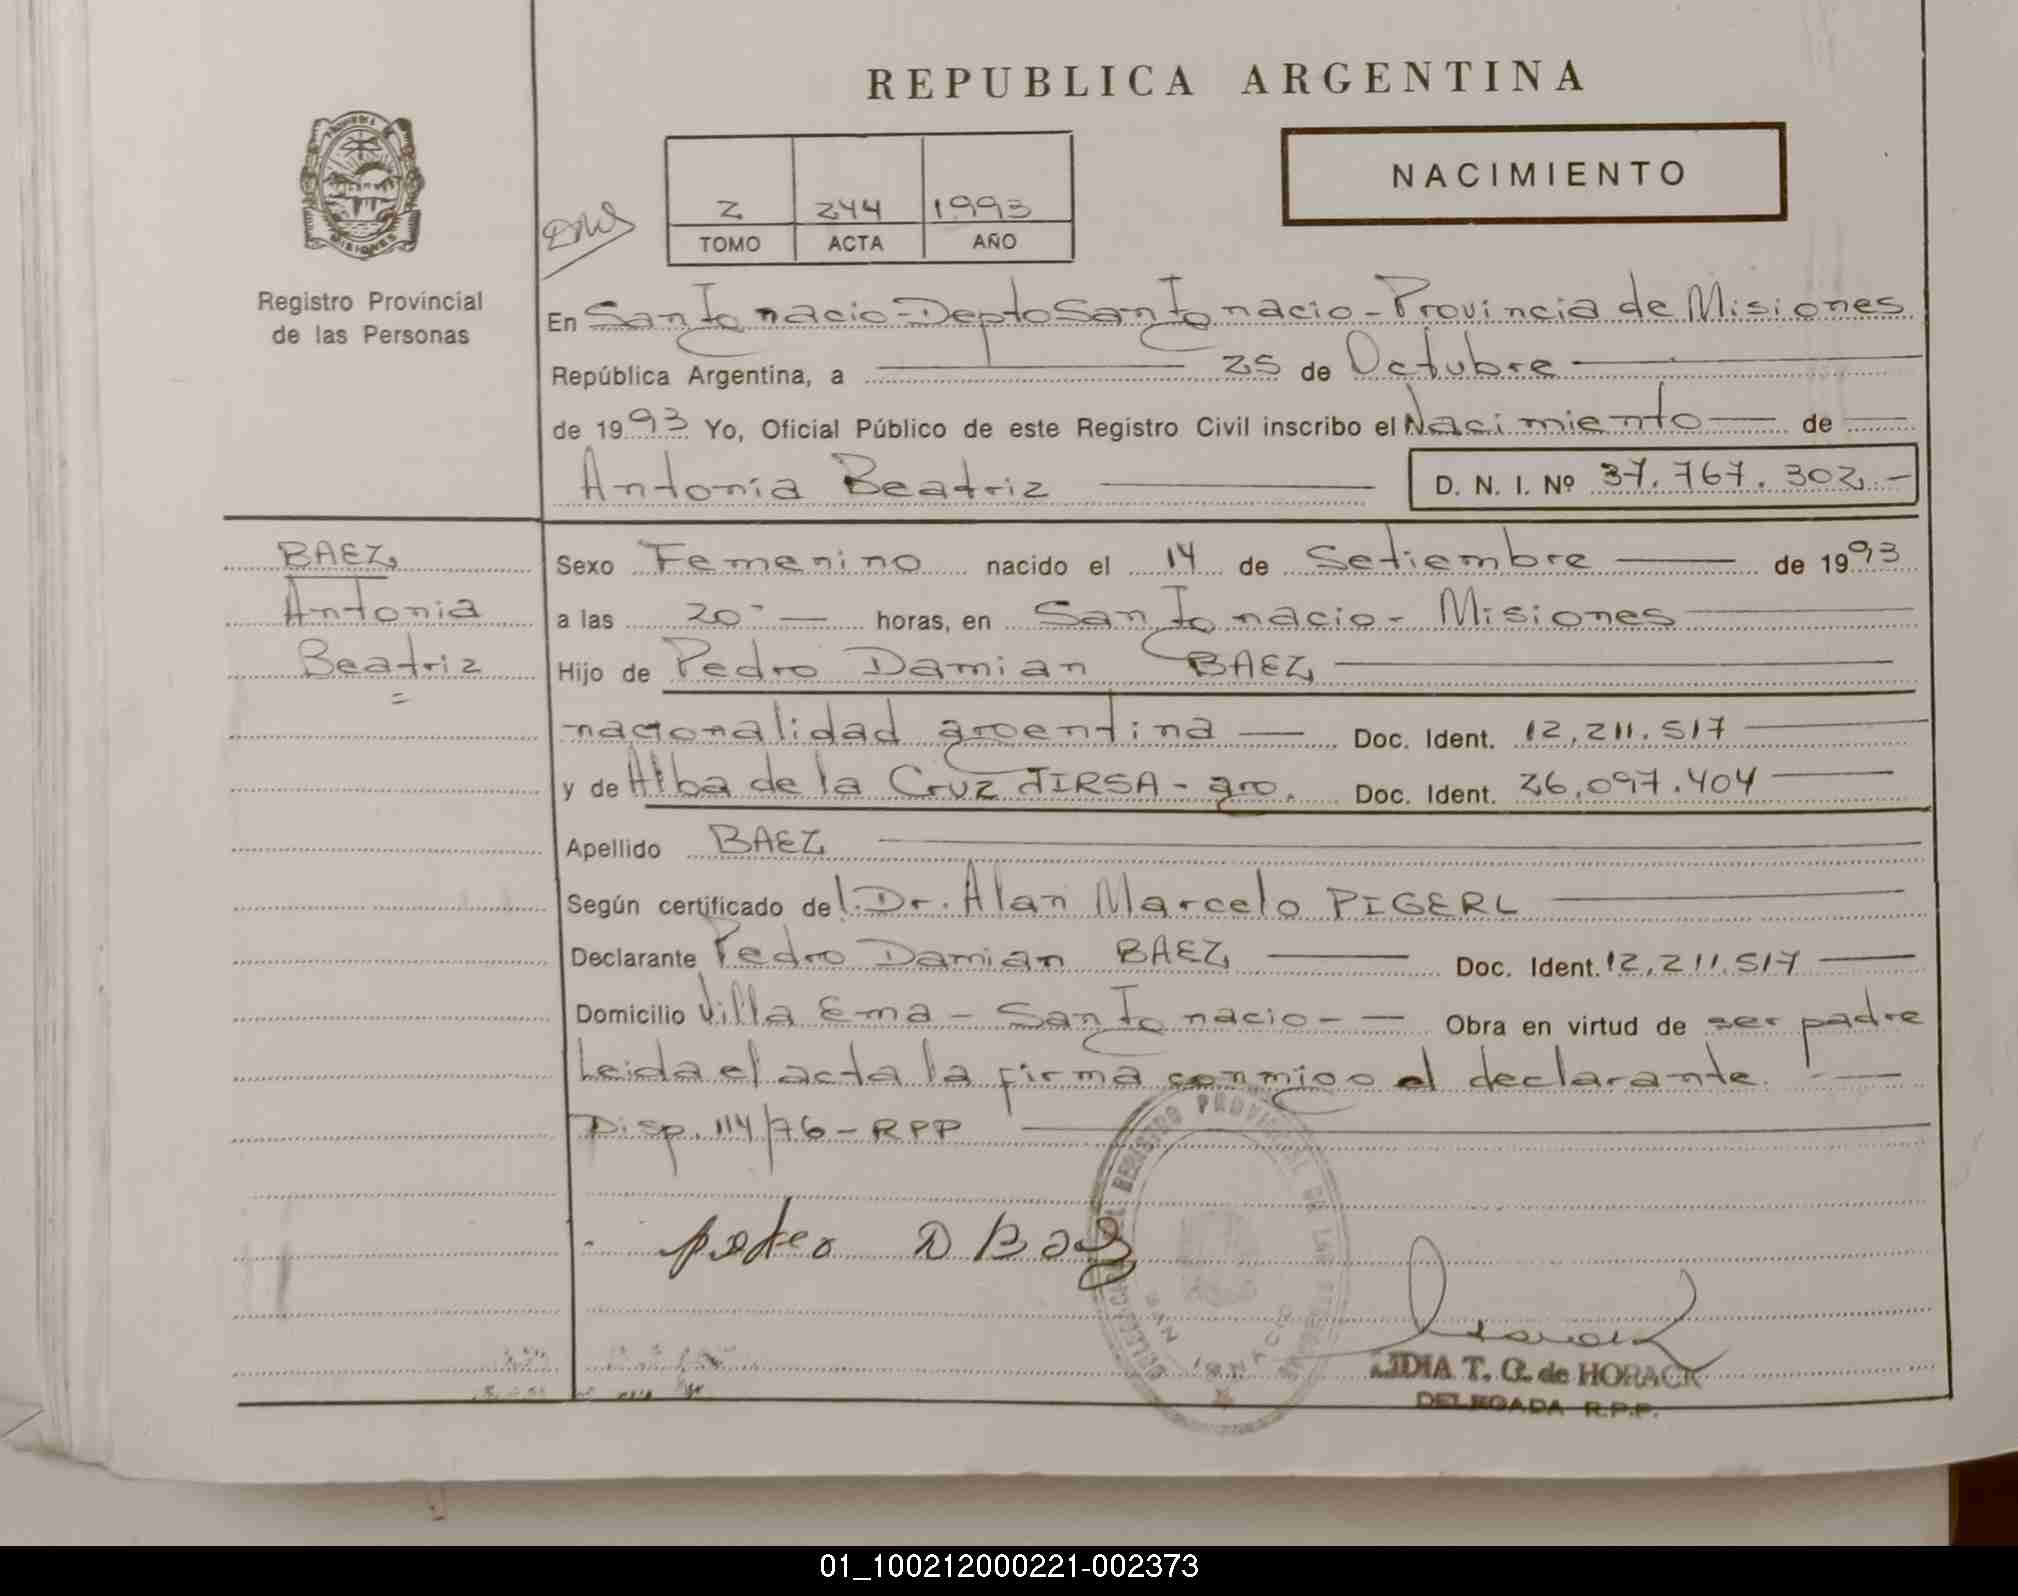 REPUBLICA ARGENTINA
NACIMIENTO
2 244 1993
TOMO ACTA AÑO
MISIONES
Registro Provincial
de las Personas
En San Ignacio - Depto San Ignacio - Provincia de Misiones
República Argentina, a 25 de Octubre
de 1993 Yo, Oficial Público de este Registro Civil inscribo el Nacimiento de
Antonia Beatriz D. N. I. Nº 37.767.302.-
BAEZ
Antonia
Beatriz
=
Sexo Femenino nacido el 14 de Setiembre de 1993
a las 20- horas, en San Ignacio - Misiones
Hijo de Pedro Damian BAEZ
nacionalidad argentina Doc. Ident. 12.211.517
y de Alba de la Cruz JIRSA - arg. Doc. Ident. 26.097.404
Apellido BAEZ
Según certificado del. Dr. Alan Marcelo PIGERL
Declarante Pedro Damian BAEZ Doc. Ident. 12.211.517
Domicilio Villa Ema - San Ignacio - - Obra en virtud de ser padre
Leida el acta la firma conmigo el declarante.
Disp. 114/76 - RPP
pedro D Baez
DELEGACION REGISTRO PROVINCIAL DE LAS PERSONAS
SAN IGNACIO
LIDIA T. G. de HORACK
DELEGADA R.P.P.
01_100212000221-002373